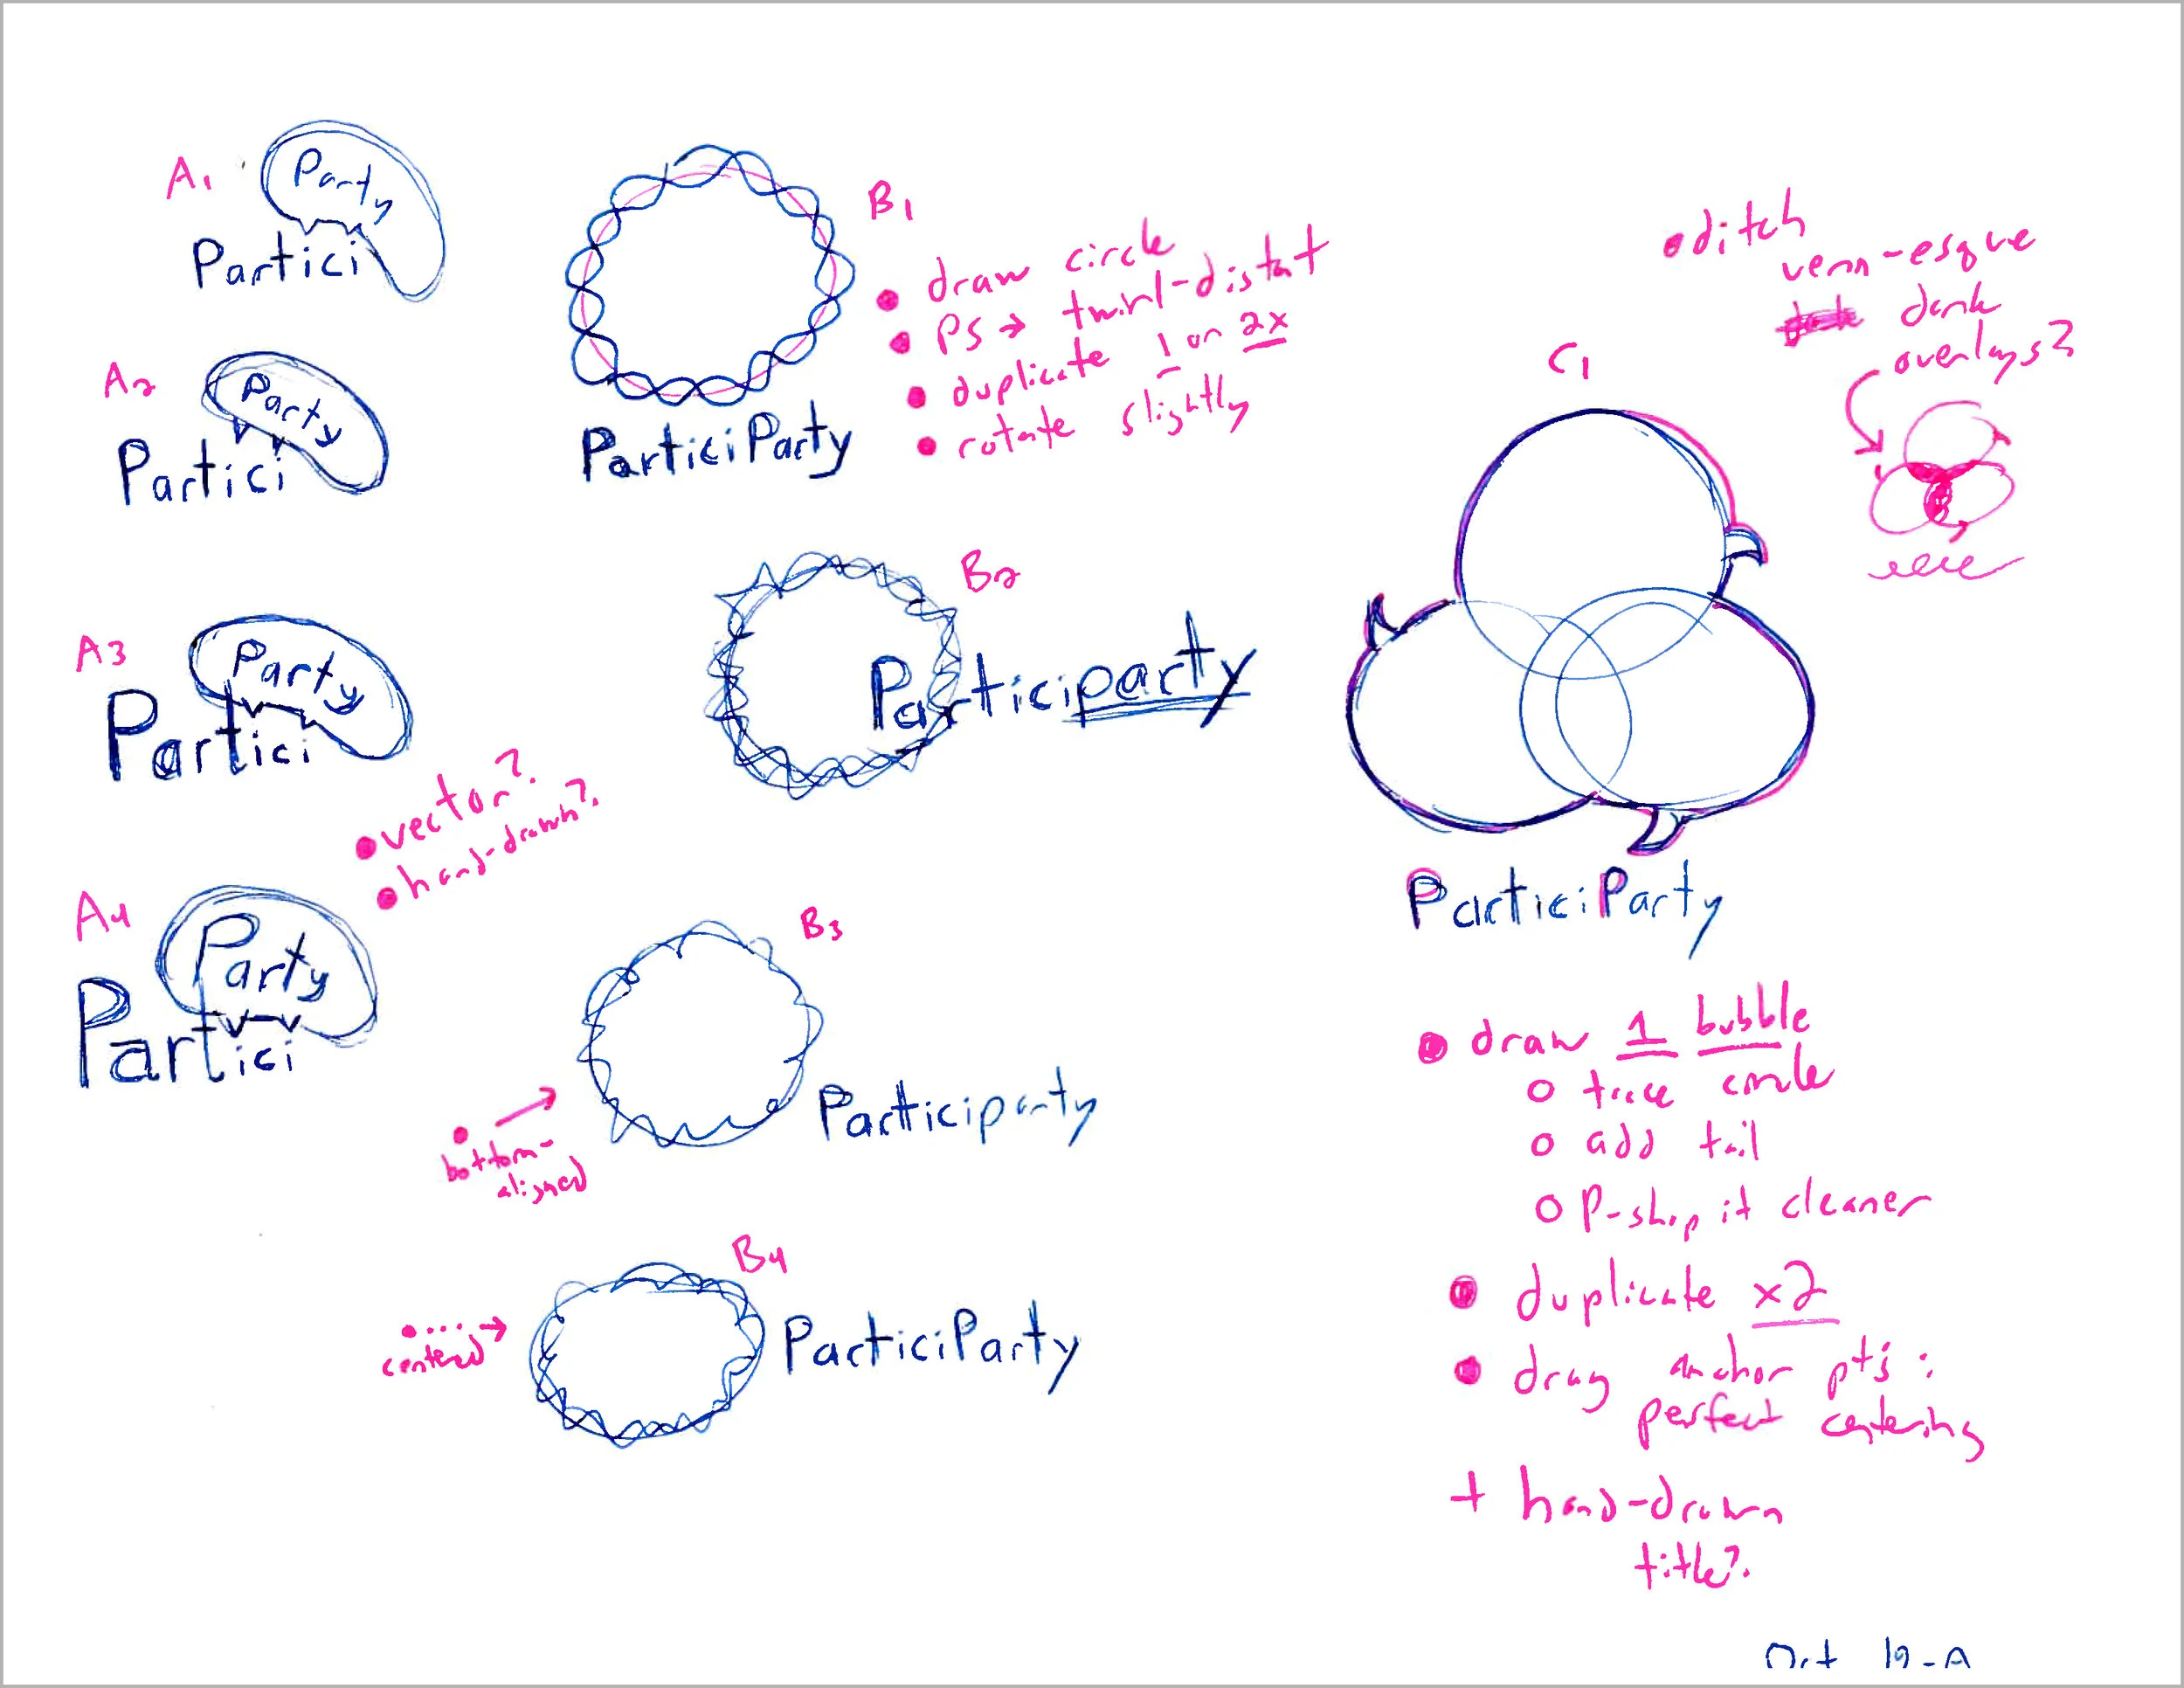 A1
Party
Partici
A2
Party
Partici
A3
Party
Partici
• vector?
• hand-drawn?
A4
Party
Partici
B1
• draw circle
• PS → twirl-distort
• duplicate 1 or 2x
• rotate slightly
ParticiParty
B2
Participarty
B3
Participarty
• bottom-
aligned
B4
ParticiParty
• centered
• ditch
venn-esque
dark
overlays?
C1
ParticiParty
• draw 1 bubble
o trace circle
o add tail
o P-shop it cleaner
• duplicate x2
• drag anchor pts:
perfect centering
+ hand-drawn
title?
Oct 19-A